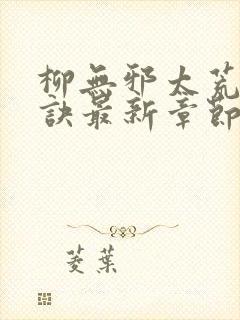 柳無邪太荒
訣最新章節
菱葉